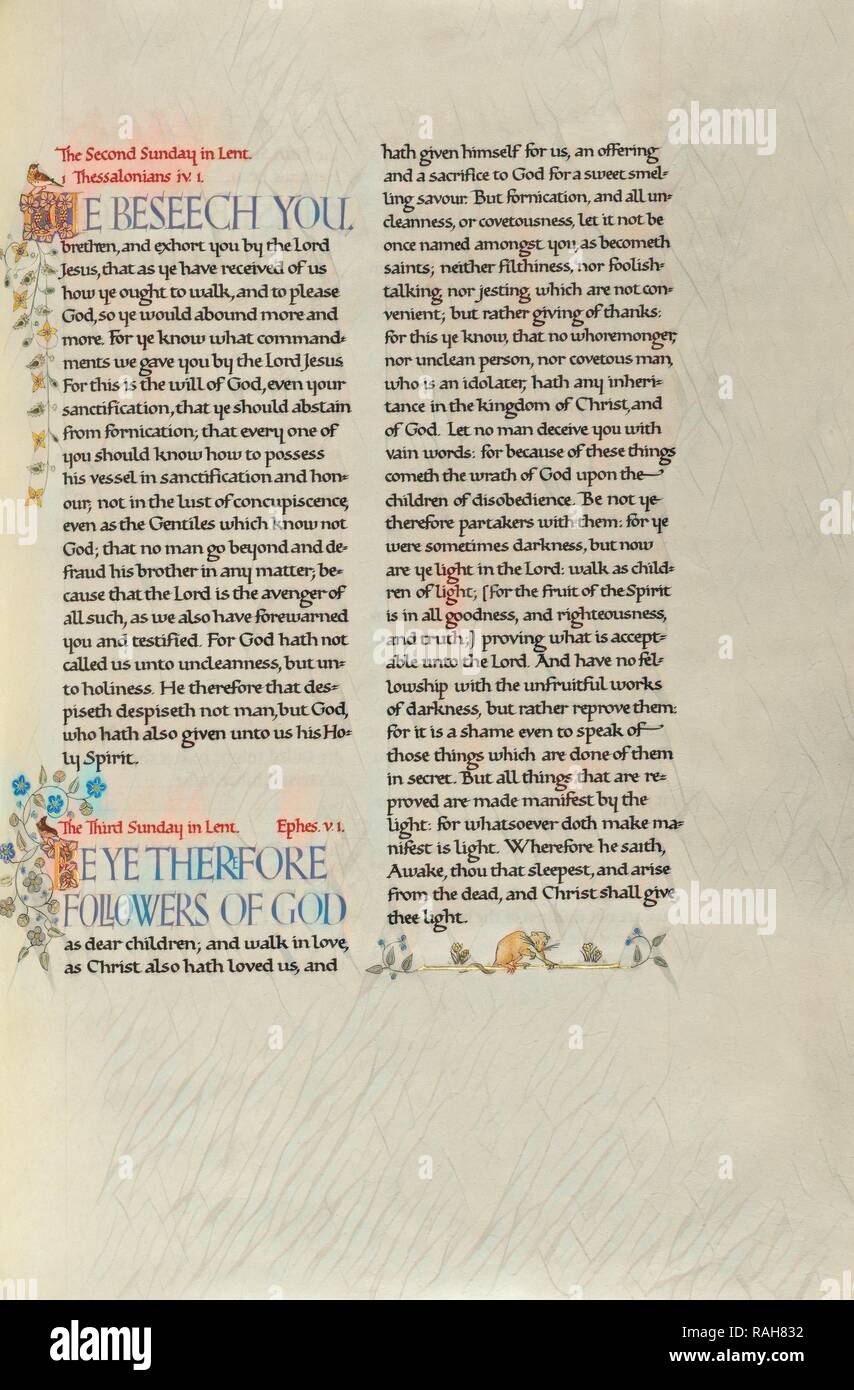 The Second Sunday in Lent.
1 Thessalonians iv. 1.
WE BESEECH YOU,
brethren, and exhort you by the Lord
Jesus, that as ye have received of us
how ye ought to walk, and to please
God, so ye would abound more and
more. For ye know what command=
ments we gave you by the Lord Jesus.
For this is the will of God, even your
sanctification, that ye should abstain
from fornication; that every one of
you should know how to possess
his vessel in sanctification and hon=
our; not in the lust of concupiscence,
even as the Gentiles which know not
God; that no man go beyond and de=
fraud his brother in any matter; be=
cause that the Lord is the avenger of
all such, as we also have forewarned
you and testified. For God hath not
called us unto uncleanness, but un=
to holiness. He therefore that des=
piseth despiseth not man, but God,
who hath also given unto us his Ho=
ly Spirit.
The Third Sunday in Lent. Ephes. v. 1.
BE YE THEREFORE
FOLLOWERS OF GOD
as dear children; and walk in love,
as Christ also hath loved us, and
hath given himself for us, an offering
and a sacrifice to God for a sweet smel=
ling savour. But fornication, and all un=
cleanness, or covetousness, let it not be
once named amongst you, as becometh
saints; neither filthiness, nor foolish=
talking, nor jesting, which are not con=
venient; but rather giving of thanks:
for this ye know, that no whoremonger,
nor unclean person, nor covetous man,
who is an idolater, hath any inheri=
tance in the kingdom of Christ, and
of God. Let no man deceive you with
vain words: for because of these things
cometh the wrath of God upon the
children of disobedience. Be not ye
therefore partakers with them: for ye
were sometimes darkness, but now
are ye light in the Lord: walk as child=
ren of light; [for the fruit of the Spirit
is in all goodness, and righteousness,
and truth;] proving what is accept=
able unto the Lord. And have no fel=
lowship with the unfruitful works
of darkness, but rather reprove them:
for it is a shame even to speak of
those things which are done of them
in secret. But all things that are re=
proved are made manifest by the
light: for whatsoever doth make ma=
nifest is light. Wherefore he saith,
Awake, thou that sleepest, and arise
from the dead, and Christ shall give
thee light.
alamy
alamy stock photo
RAH832
www.alamy.com